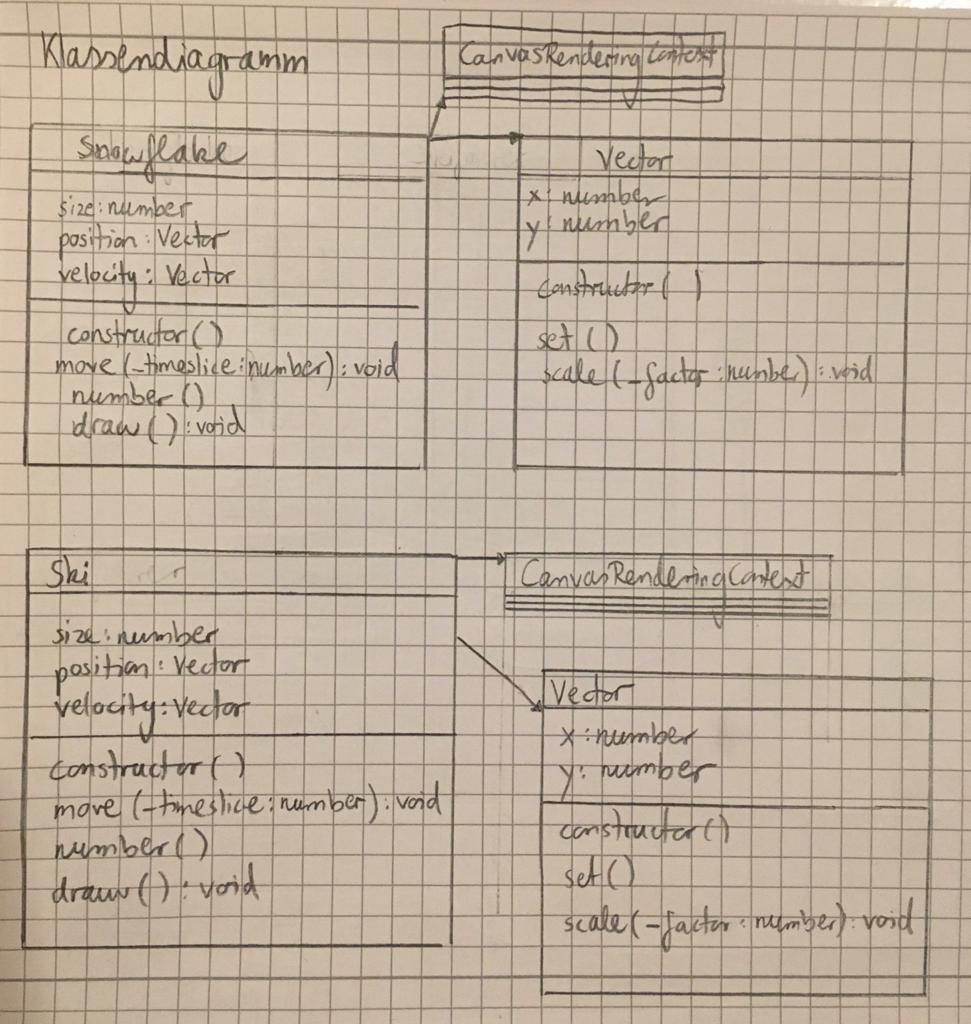 Klassendiagramm
CanvasRenderingContext
Snowflake
size:number
position:Vector
velocity: Vector
constructor()
move (-timeslice:number): void
number()
draw():void
Vector
x: number
y: number
constructor( )
set()
scale(-factor:number):void
Ski
size:number
position:Vector
velocity:Vector
constructor()
move (-timeslice:number): void
number()
draw(): void
CanvasRenderingContext
Vector
x:number
y: number
constructor()
set()
scale(-factor:number): void